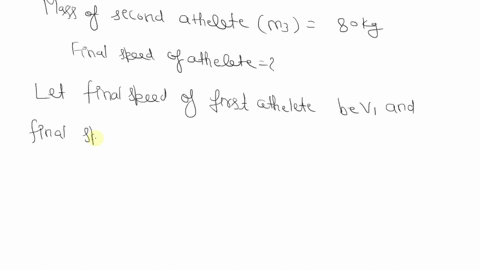 Mass of second athelete (m3) = 80kg
Final speed of athelete = ?
Let final speed of frost athelete be V1 and
final sp